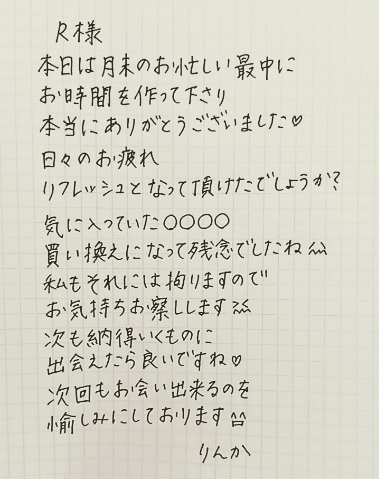 R様
本日は月末のお忙しい最中に
お時間を作って下さり
本当にありがとうございました♡
日々のお疲れ
リフレッシュとなって頂けたでしょうか?
気に入っていた○○○○
買い換えになって残念でしたね
私もそれには拘りますので
お気持ちお察しします
次も納得いくものに
出会えたら良いですね♡
次回もお会い出来るのを
愉しみにしております^^
りんか